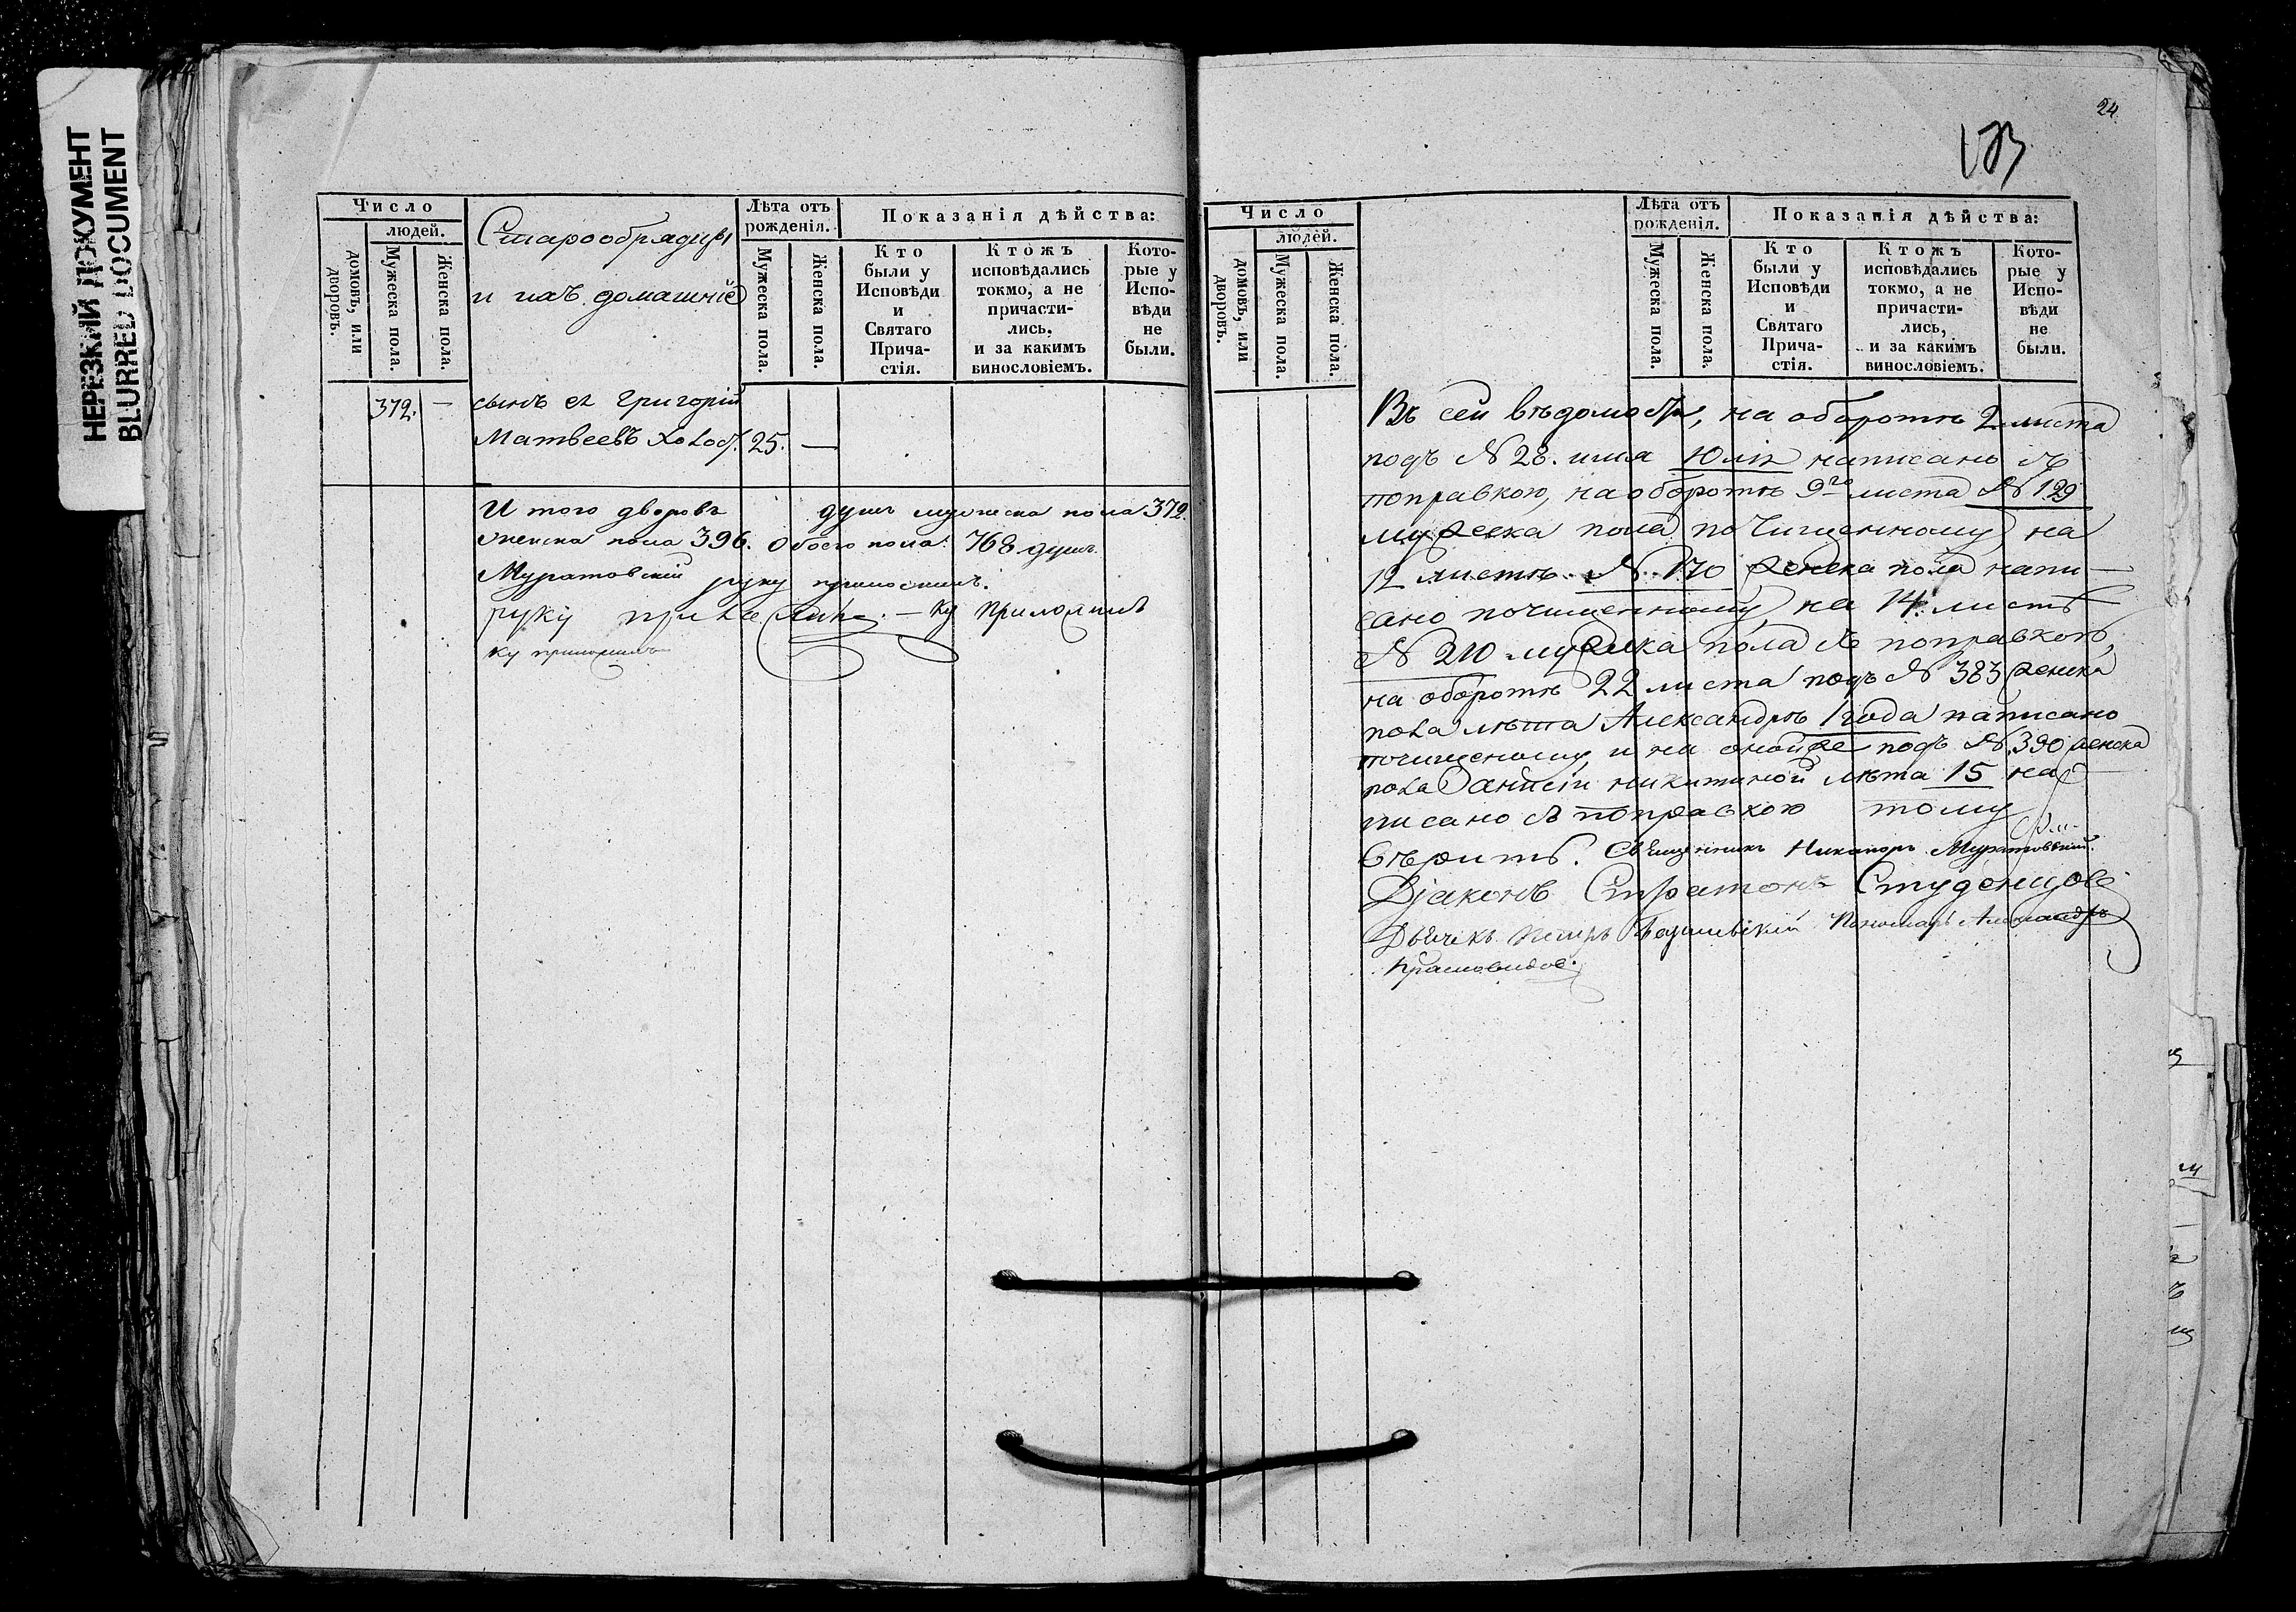 НЕРЕЗКИЙ ДОКУМЕНТ
BLURRED DOCUMENT
Число
людей.
домовъ, или дворовъ.
Мужеска пола.
Женска пола.
Старообрядцы
и ихъ домашніе
Лѣта отъ рожденія.
Мужеска пола.
Женска пола.
Показанія дѣйства:
Кто были у Исповѣди и Святаго Прича-стія.
Ктожъ исповѣдались токмо, а не причасти-лись, и за какимъ винословіемъ.
Кото-рые у Испо-вѣди не были.
372. — сынъ ея Григорій
Матвеевъ холос. 25. —
И того дворовъ душъ мужеска пола 372.
женска пола 396. обоего пола. 768 душъ.
Муратовскій руку приложилъ.
руку приложилъ
ку приложилъ
24
Число
людей.
домовъ, или дворовъ.
Мужеска пола.
Женска пола.
Лѣта отъ рожденія.
Мужеска пола.
Женска пола.
Показанія дѣйства:
Кто были у Исповѣди и Святаго Прича-стія.
Ктожъ исповѣдались токмо, а не причасти-лись, и за какимъ винословіемъ.
Кото-рые у Испо-вѣди не были.
Въ сей вѣдомости, на оборотѣ 2 листа
подъ № 28. имя Юлія написано съ
поправкою, на оборотѣ 9го листа № 129
мужеска пола почищенному, на
12 листѣ № 170 женска пола напи-
сано почищенному, на 14. листѣ
№ 210 мужеска пола съ поправкою,
на оборотѣ 22 листа подъ № 383 женска
пола лѣта Александрѣ 1 года написано
почищеному, и на оной же подъ № 390 женска
пола никитиной лѣта 15 на-
писано съ поправкою тому
вѣрить. Священникъ Никаноръ Муратовскій.
Діаконъ Стратонъ Студенцовъ
Дьячекъ Петръ Пономарь Александръ
Красновидовъ.